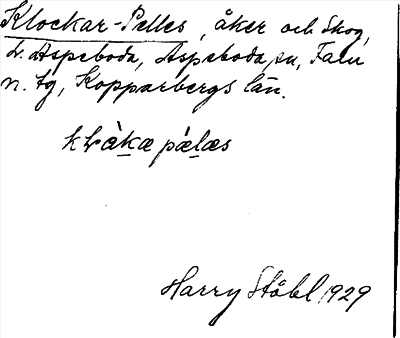 Klockar-Pelles, åker och skog,
L. Aspeboda, Aspeboda sn, Falu
n. tg, Kopparbergs län.
klɑ̀kæ pǽlæs
Harry Ståhl 1929